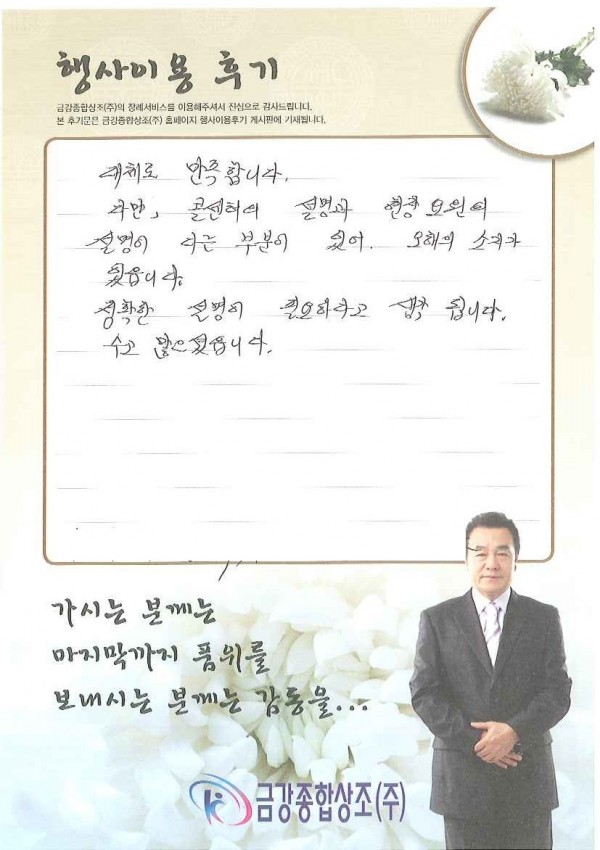 행사이용 후기
금강종합상조(주)의 장례서비스를 이용해주셔서 진심으로 감사드립니다.
본 후기문은 금강종합상조(주) 홈페이지 행사이용후기 게시판에 기재됩니다.
대체로 만족합니다.
다만, 콜센터의 설명과 현장 요원의
설명이 다른 부분이 있어. 오해의 소지가
됬습니다.
정확한 설명이 필요하다고 생각 됩니다.
수고 많으셨습니다.
가시는 분께는
마지막까지 품위를
보내시는 분께는 감동을...
금강종합상조(주)